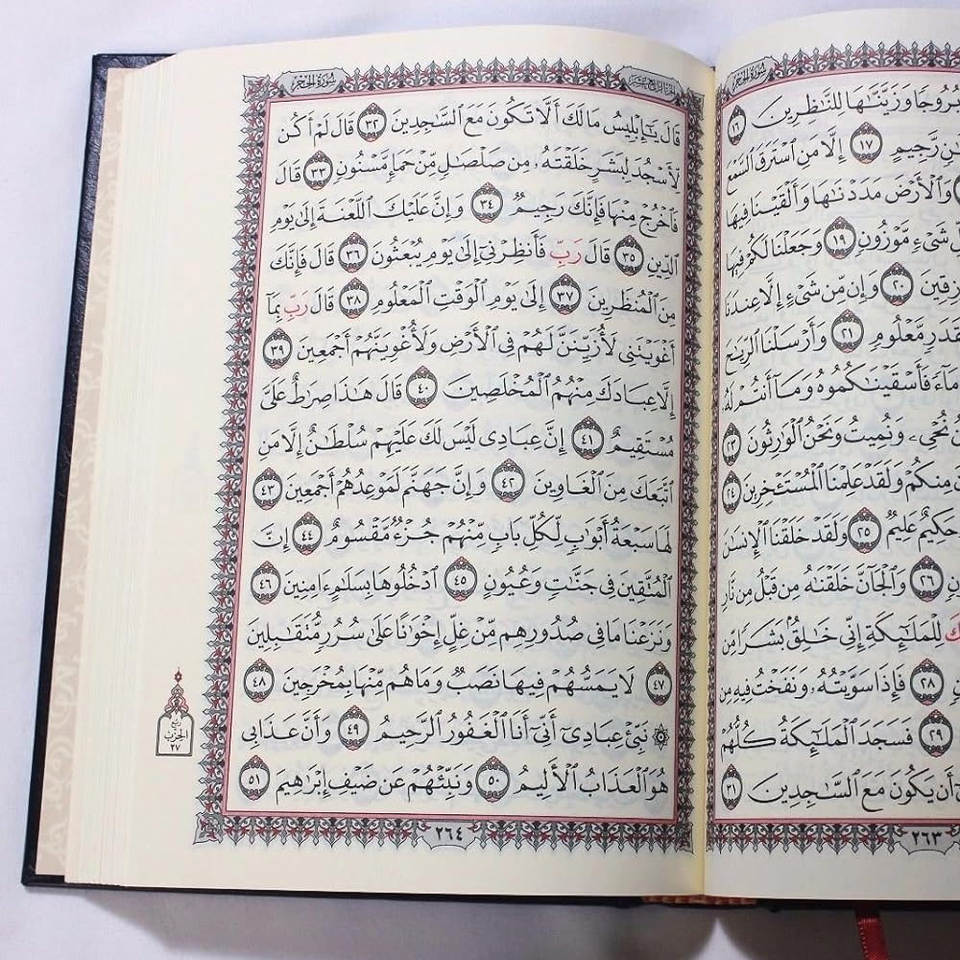 سُورَةُ الحِجْرِ
بُرُوجًا وَزَيَّنَّٰهَا لِلنَّٰظِرِينَ ١٦
رَّجِيمٍ ١٧ إِلَّا مَنِ ٱسْتَرَقَ ٱلسَّمْعَ
وَٱلْأَرْضَ مَدَدْنَٰهَا وَأَلْقَيْنَا فِيهَا
شَىْءٍ مَّوْزُونٍ ١٩ وَجَعَلْنَا لَكُمْ فِيهَا
٢٠ وَإِن مِّن شَىْءٍ إِلَّا عِندَنَا
بِقَدَرٍ مَّعْلُومٍ ٢١ وَأَرْسَلْنَا ٱلرِّيَٰحَ
مَآءً فَأَسْقَيْنَٰكُمُوهُ وَمَآ أَنتُمْ لَهُۥ
نُحْىِۦ وَنُمِيتُ وَنَحْنُ ٱلْوَٰرِثُونَ ٢٣
مِنكُمْ وَلَقَدْ عَلِمْنَا ٱلْمُسْتَـْٔخِرِينَ ٢٤
حَكِيمٌ عَلِيمٌ ٢٥ وَلَقَدْ خَلَقْنَا ٱلْإِنسَٰنَ
٢٦ وَٱلْجَآنَّ خَلَقْنَٰهُ مِن قَبْلُ مِن نَّارِ
لِلْمَلَٰٓئِكَةِ إِنِّى خَٰلِقٌۢ بَشَرًا مِّن
٢٨ فَإِذَا سَوَّيْتُهُۥ وَنَفَخْتُ فِيهِ مِن
٢٩ فَسَجَدَ ٱلْمَلَٰٓئِكَةُ كُلُّهُمْ
أَن يَكُونَ مَعَ ٱلسَّٰجِدِينَ ٣١
٢٦٣
الجزء الرابع عشر سُورَةُ الحِجْرِ
قَالَ يَٰٓإِبْلِيسُ مَا لَكَ أَلَّا تَكُونَ مَعَ ٱلسَّٰجِدِينَ ٣٢ قَالَ لَمْ أَكُن
لِّأَسْجُدَ لِبَشَرٍ خَلَقْتَهُۥ مِن صَلْصَٰلٍ مِّنْ حَمَإٍ مَّسْنُونٍ ٣٣ قَالَ
فَٱخْرُجْ مِنْهَا فَإِنَّكَ رَجِيمٌ ٣٤ وَإِنَّ عَلَيْكَ ٱللَّعْنَةَ إِلَىٰ يَوْمِ
ٱلدِّينِ ٣٥ قَالَ رَبِّ فَأَنظِرْنِىٓ إِلَىٰ يَوْمِ يُبْعَثُونَ ٣٦ قَالَ فَإِنَّكَ
مِنَ ٱلْمُنظَرِينَ ٣٧ إِلَىٰ يَوْمِ ٱلْوَقْتِ ٱلْمَعْلُومِ ٣٨ قَالَ رَبِّ بِمَآ
أَغْوَيْتَنِى لَأُزَيِّنَنَّ لَهُمْ فِى ٱلْأَرْضِ وَلَأُغْوِيَنَّهُمْ أَجْمَعِينَ ٣٩
إِلَّا عِبَادَكَ مِنْهُمُ ٱلْمُخْلَصِينَ ٤٠ قَالَ هَٰذَا صِرَٰطٌ عَلَىَّ
مُسْتَقِيمٌ ٤١ إِنَّ عِبَادِى لَيْسَ لَكَ عَلَيْهِمْ سُلْطَٰنٌ إِلَّا مَنِ
ٱتَّبَعَكَ مِنَ ٱلْغَاوِينَ ٤٢ وَإِنَّ جَهَنَّمَ لَمَوْعِدُهُمْ أَجْمَعِينَ ٤٣
لَهَا سَبْعَةُ أَبْوَٰبٍ لِّكُلِّ بَابٍ مِّنْهُمْ جُزْءٌ مَّقْسُومٌ ٤٤ إِنَّ
ٱلْمُتَّقِينَ فِى جَنَّٰتٍ وَعُيُونٍ ٤٥ ٱدْخُلُوهَا بِسَلَٰمٍ ءَامِنِينَ ٤٦
وَنَزَعْنَا مَا فِى صُدُورِهِم مِّنْ غِلٍّ إِخْوَٰنًا عَلَىٰ سُرُرٍ مُّتَقَٰبِلِينَ
٤٧ لَا يَمَسُّهُمْ فِيهَا نَصَبٌ وَمَا هُم مِّنْهَا بِمُخْرَجِينَ ٤٨
۞ نَبِّئْ عِبَادِىٓ أَنِّىٓ أَنَا ٱلْغَفُورُ ٱلرَّحِيمُ ٤٩ وَأَنَّ عَذَابِى
هُوَ ٱلْعَذَابُ ٱلْأَلِيمُ ٥٠ وَنَبِّئْهُمْ عَن ضَيْفِ إِبْرَٰهِيمَ ٥١
٢٦٤
ربع
الحزب
٢٧